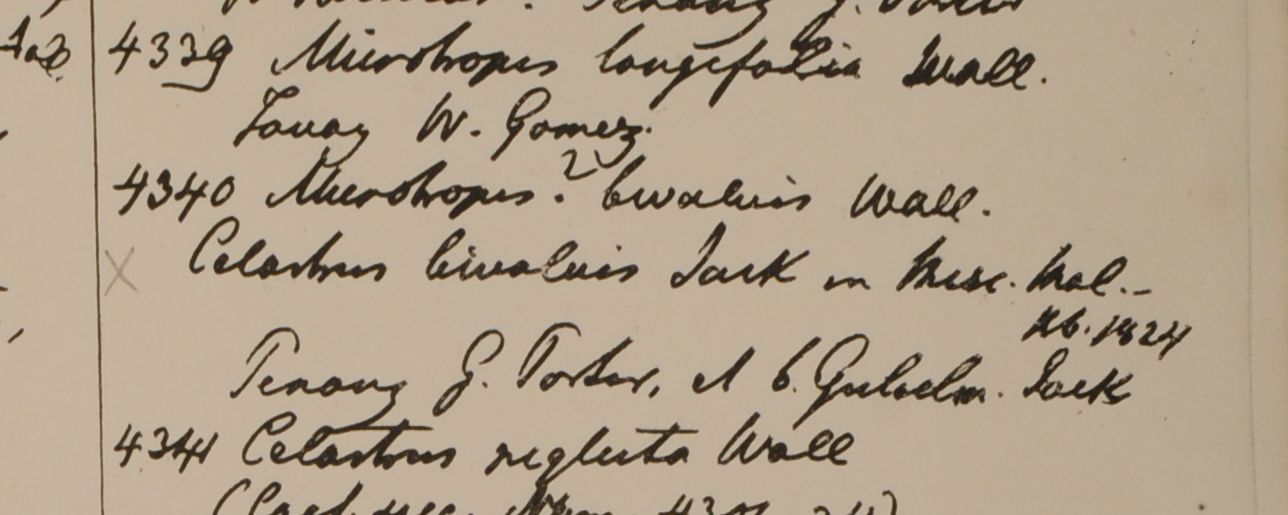 Penang G. Porter
4339 Microtropis longifolia Wall.
Tavoy W. Gomez.
4340 Microtropis? bivalvis Wall.
X Celastrus bivalvis Jack in Misc. Mal.-
Hb. 1824
Penang G. Porter, et b. Gulielm. Jack
4341 Celastrus neglecta Wall